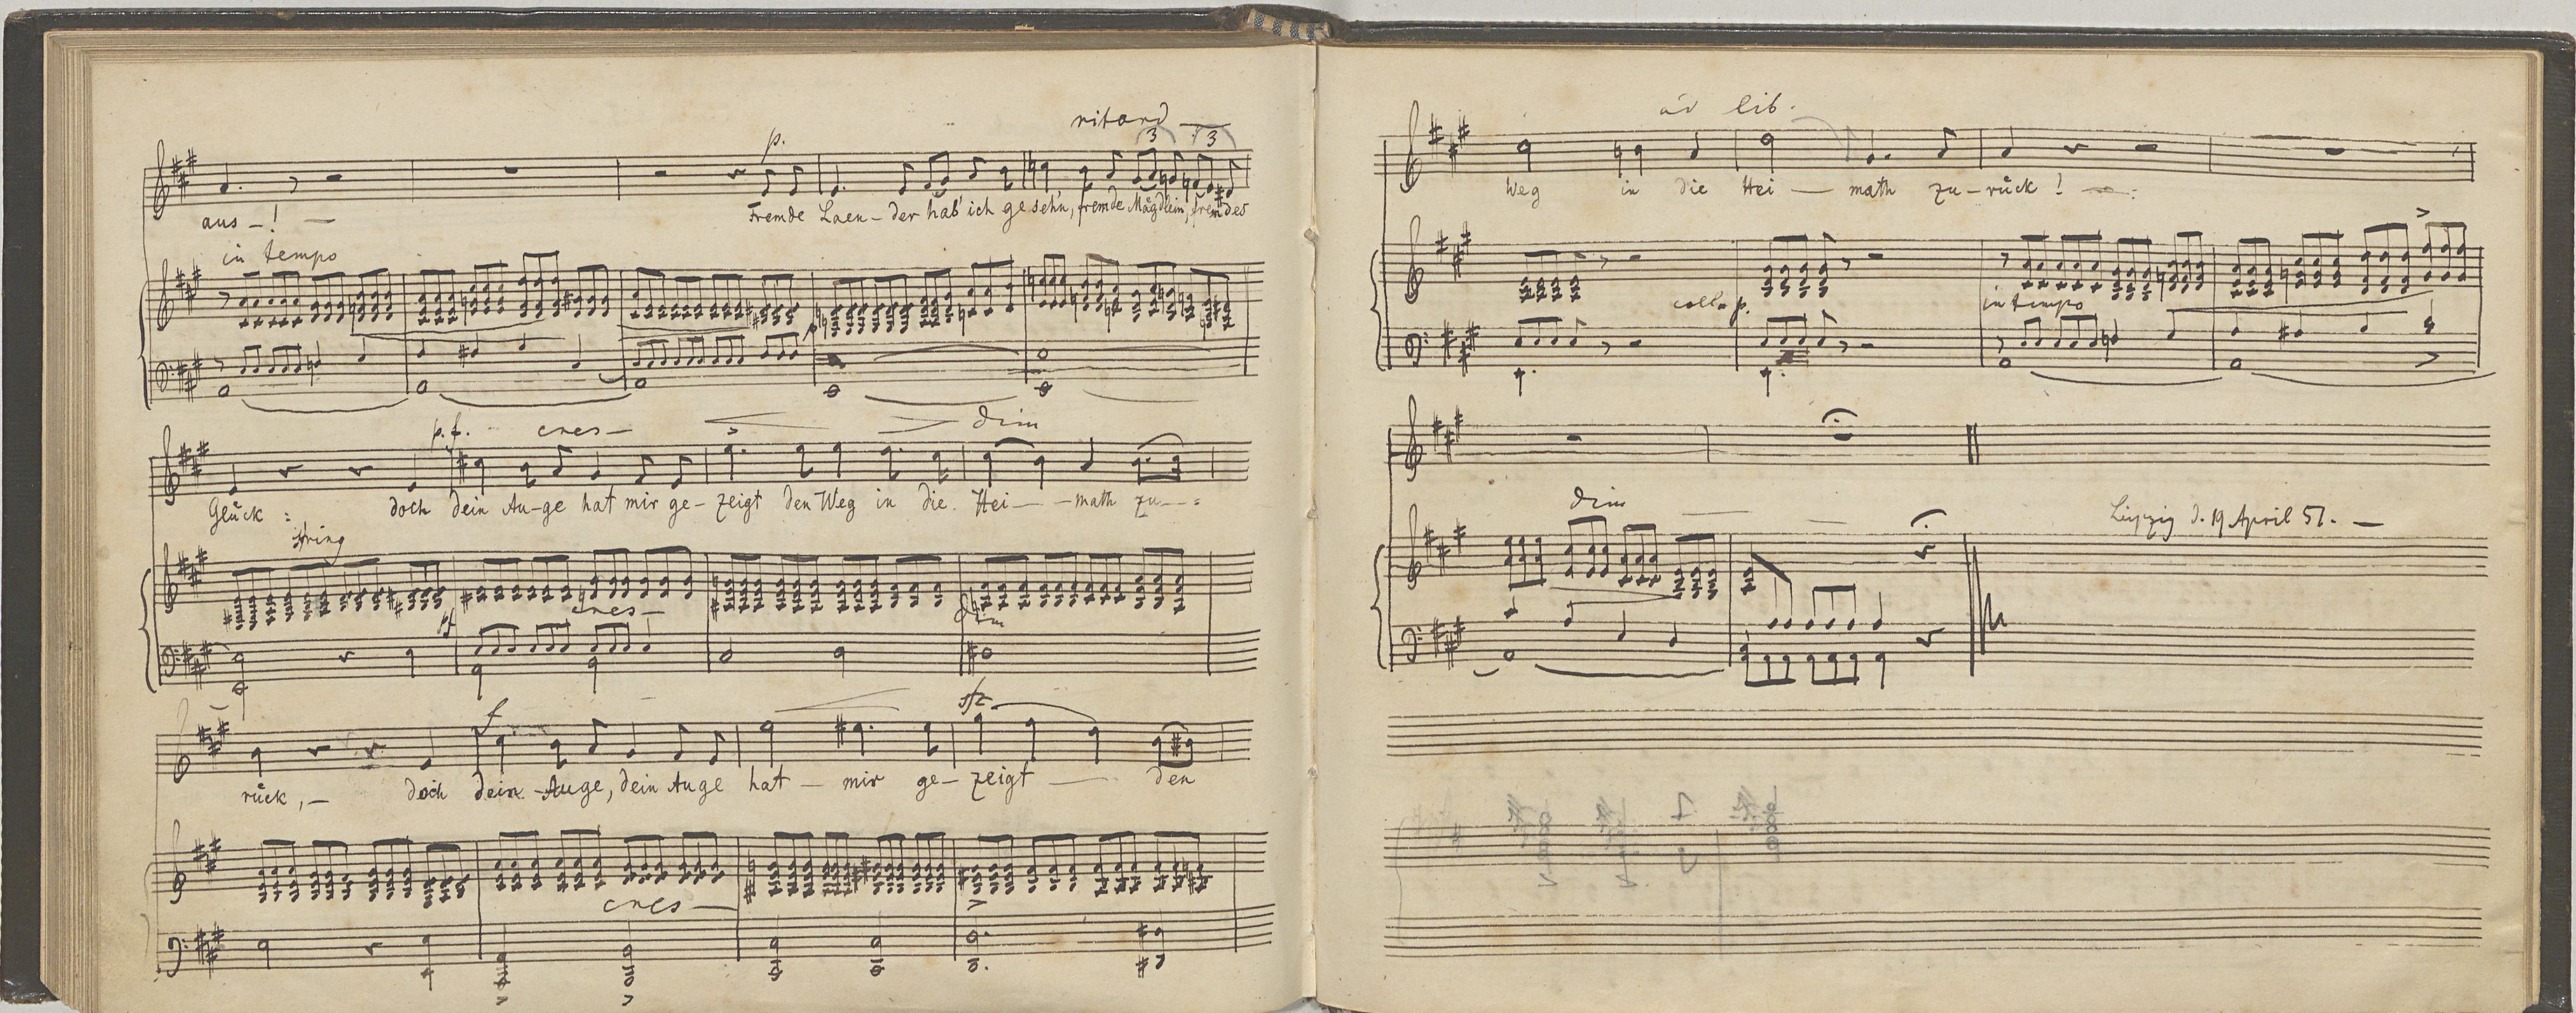 ritard
p. 3 3
aus-! — Fremde Laen-der hab' ich gesehn, fremde Mägdlein, fremdes
in tempo
p.f. cres- dim
Glück : doch dein Au-ge hat mir ge-zeigt den Weg in die Hei- -math zu--
string
cres-
pf dim
f sfz
rück, - doch dein Auge, dein Auge hat - mir ge-zeigt - den
cres-
ad lib.
Weg in die Hei - math zu-rück! -
colla p. in tempo
dim
Leipzig d. 19 April 51. -